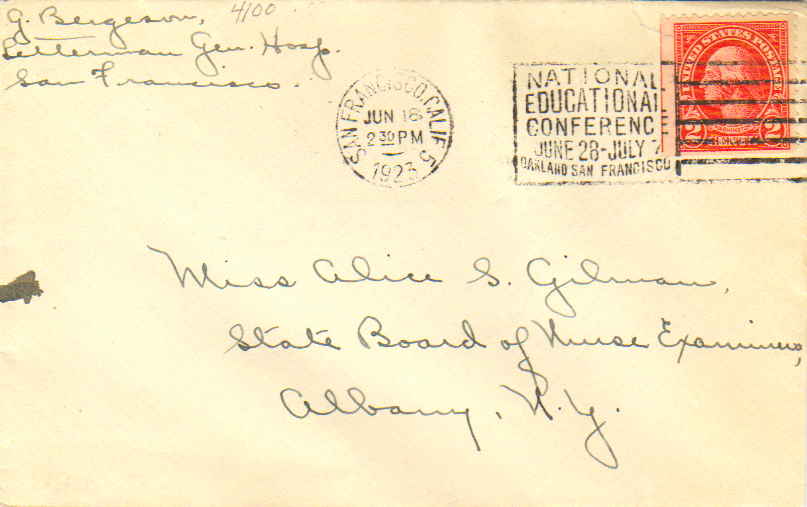 G. Bergeson, 4100
Letterman Gen. Hosp.
San Francisco.
SAN FRANCISCO, CALIF. 5
JUN 18
2 30 PM
1923
NATIONAL
EDUCATIONAL
CONFERENCE
JUNE 28-JULY 7
OAKLAND SAN FRANCISCO
UNITED STATES POSTAGE
2 2
Miss Alice S. Gilman,
State Board of Nurse Examiners,
Albany, N.Y.